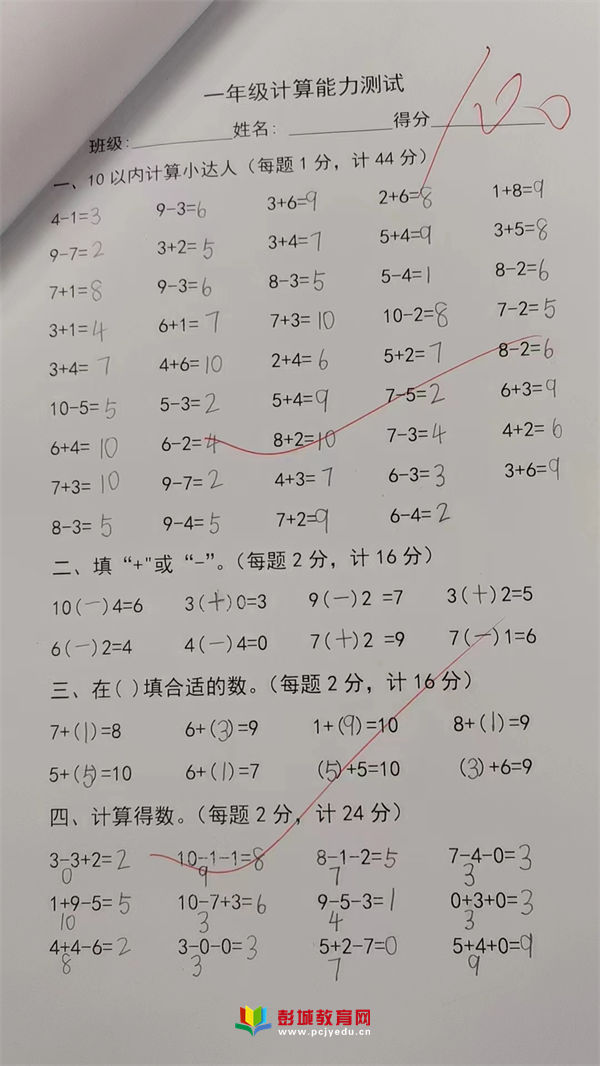 一年级计算能力测试
100
班级: 姓名: 得分
一、10以内计算小达人（每题1分，计44分）
4-1=3 9-3=6 3+6=9 2+6=8 1+8=9
9-7=2 3+2=5 3+4=7 5+4=9 3+5=8
7+1=8 9-3=6 8-3=5 5-4=1 8-2=6
3+1=4 6+1=7 7+3=10 10-2=8 7-2=5
3+4=7 4+6=10 2+4=6 5+2=7 8-2=6
10-5=5 5-3=2 5+4=9 7-5=2 6+3=9
6+4=10 6-2=4 8+2=10 7-3=4 4+2=6
7+3=10 9-7=2 4+3=7 6-3=3 3+6=9
8-3=5 9-4=5 7+2=9 6-4=2
二、填“+"或“-”。（每题2分，计16分）
10(-)4=6 3(+)0=3 9(-)2 =7 3(+)2=5
6(-)2=4 4(-)4=0 7(+)2 =9 7(-)1=6
三、在( )填合适的数。（每题2分，计16分）
7+(1)=8 6+(3)=9 1+(9)=10 8+(1)=9
5+(5)=10 6+(1)=7 (5)+5=10 (3)+6=9
四、计算得数。（每题2分，计24分）
3-3+2=2 10-1-1=8 8-1-2=5 7-4-0=3
0 9 7 3
1+9-5=5 10-7+3=6 9-5-3=1 0+3+0=3
10 3 4 3
4+4-6=2 3-0-0=3 5+2-7=0 5+4+0=9
8 3 7 9
彭城教育网
www.pcjyedu.cn